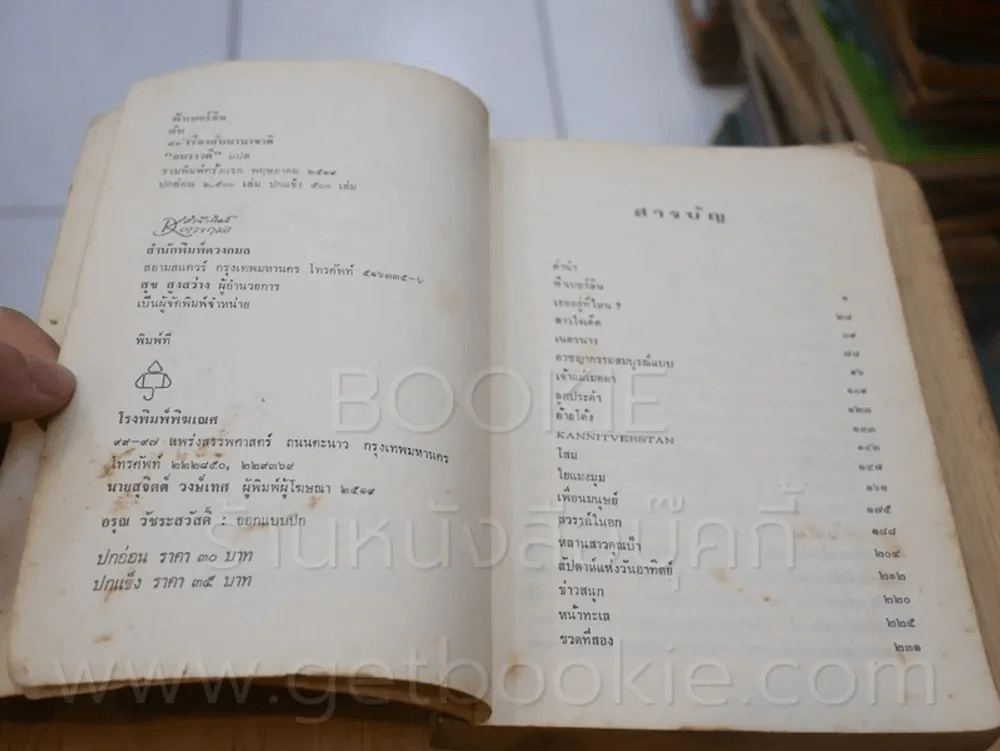 พันเบอร์ลิน
กับ
๑๐ เรื่องสั้นนานาชาติ
"อมราวดี" แปล
รวมพิมพ์ครั้งแรก พฤษภาคม ๒๕๑๙
ปกอ่อน ๒,๕๐๐ เล่ม ปกแข็ง ๕๐๐ เล่ม
สำนักพิมพ์
ดวงกมล
สำนักพิมพ์ดวงกมล
สยามสแควร์ กรุงเทพมหานคร โทรศัพท์ ๕๑๖๓๓๕-๖
สุข สูงสว่าง ผู้อำนวยการ
เป็นผู้จัดพิมพ์จำหน่าย
พิมพ์ที่
โรงพิมพ์พิฆเณศ
๙๙-๙๗ แพร่งสรรพศาสตร์ ถนนตะนาว กรุงเทพมหานคร
โทรศัพท์ ๒๒๒๘๕๐, ๒๒๙๓๖๙
นายสุจิตต์ วงษ์เทศ ผู้พิมพ์ผู้โฆษณา ๒๕๑๙
อรุณ วัชระสวัสดิ์ : ออกแบบปก
ปกอ่อน ราคา ๓๐ บาท
ปกแข็ง ราคา ๓๕ บาท
สารบัญ
คำนำ
พันเบอร์ลิน ๑
เธออยู่ที่ไหน ? ๒๘
สาวใจเด็ด ๓๙
เนตรนาง ๗๗
อาชญากรรมสมบูรณ์แบบ ๙๖
เจ้าแม่เมตตา ๑๐๙
ผลประคำ ๑๒๓
อ้ายโต้ง ๑๓๓
KANNITVERSTAN ๑๔๒
โสม ๑๔๗
ใยแมงมุม ๑๖๑
เพื่อนมนุษย์ ๑๗๕
สวรรค์ในอก ๑๘๘
หลานสาวคุณย่า ๒๐๔
สัปดาห์แห่งวันอาทิตย์ ๒๑๒
ข่าวสนุก ๒๒๐
หน้าทะเล ๒๒๕
ขวดที่สอง ๒๓๑
BOOKIE
ร้านหนังสือบุ๊คกี้
www.getbookie.com